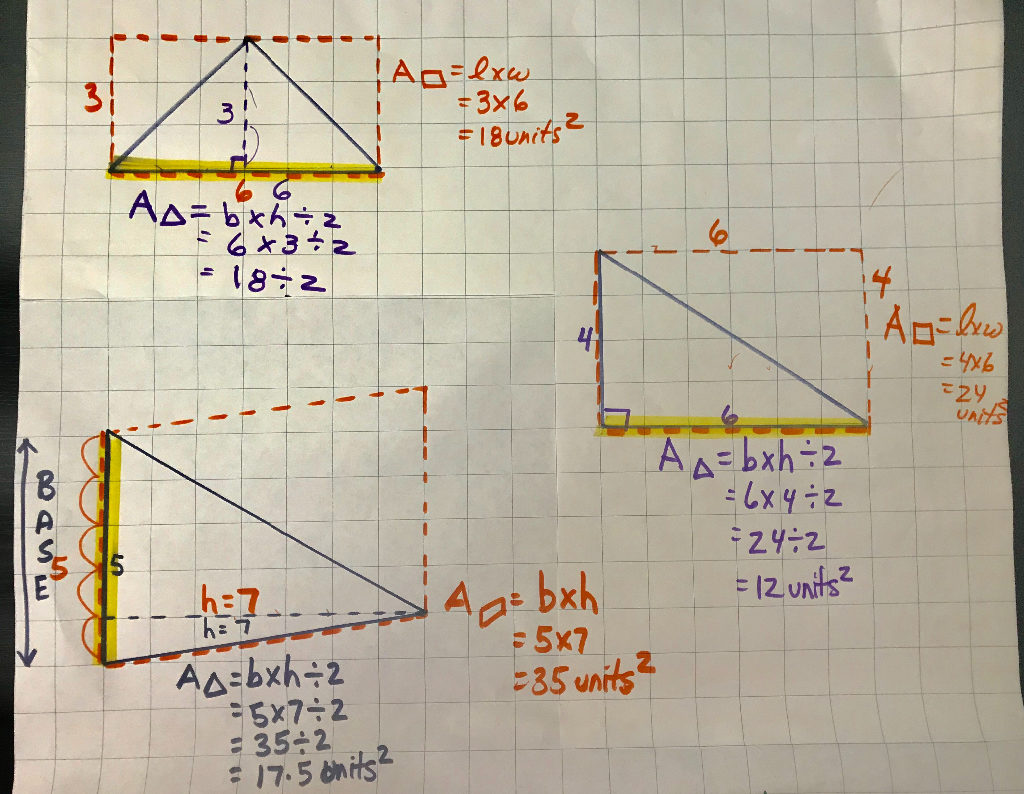 3
3
A▭ = l x w
= 3 x 6
= 18 units²
6 6
A△ = b x h ÷ 2
= 6 x 3 ÷ 2
= 18 ÷ 2
6
4
4
6
A▭ = l x w
= 4x6
= 24
units²
A△ = b x h ÷ 2
= 6 x 4 ÷ 2
= 24 ÷ 2
= 12 units²
BASE
5
5
h = 7
h = 7
A▱ = b x h
= 5 x 7
= 35 units²
A△ = b x h ÷ 2
= 5 x 7 ÷ 2
= 35 ÷ 2
= 17.5 units²